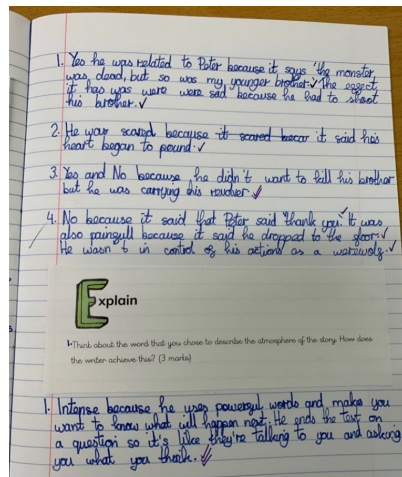 1. Yes he was related to Peter because it says 'the monster
was dead, but so was my younger brother. The effect
it has was were were sad because he had to shoot
his brother.
2. He was scared because it scared becar it said his
heart began to pound.
3. Yes and No because he didn't want to kill his brother
but he was carrying his revolver.
4. No because it said that Peter said 'thank you'. It was
also painfull because it said he dropped to the floor.
He wasn't in control of his actions as a werewolf.
Explain
1-Think about the word that you chose to describe the atmosphere of the story. How does
the writer achieve this? (3 marks)
1. Intense because he uses powerful words and makes you
want to know what will happen next. He ends the text on
a question so it's like they're talking to you and asking
you what you think.